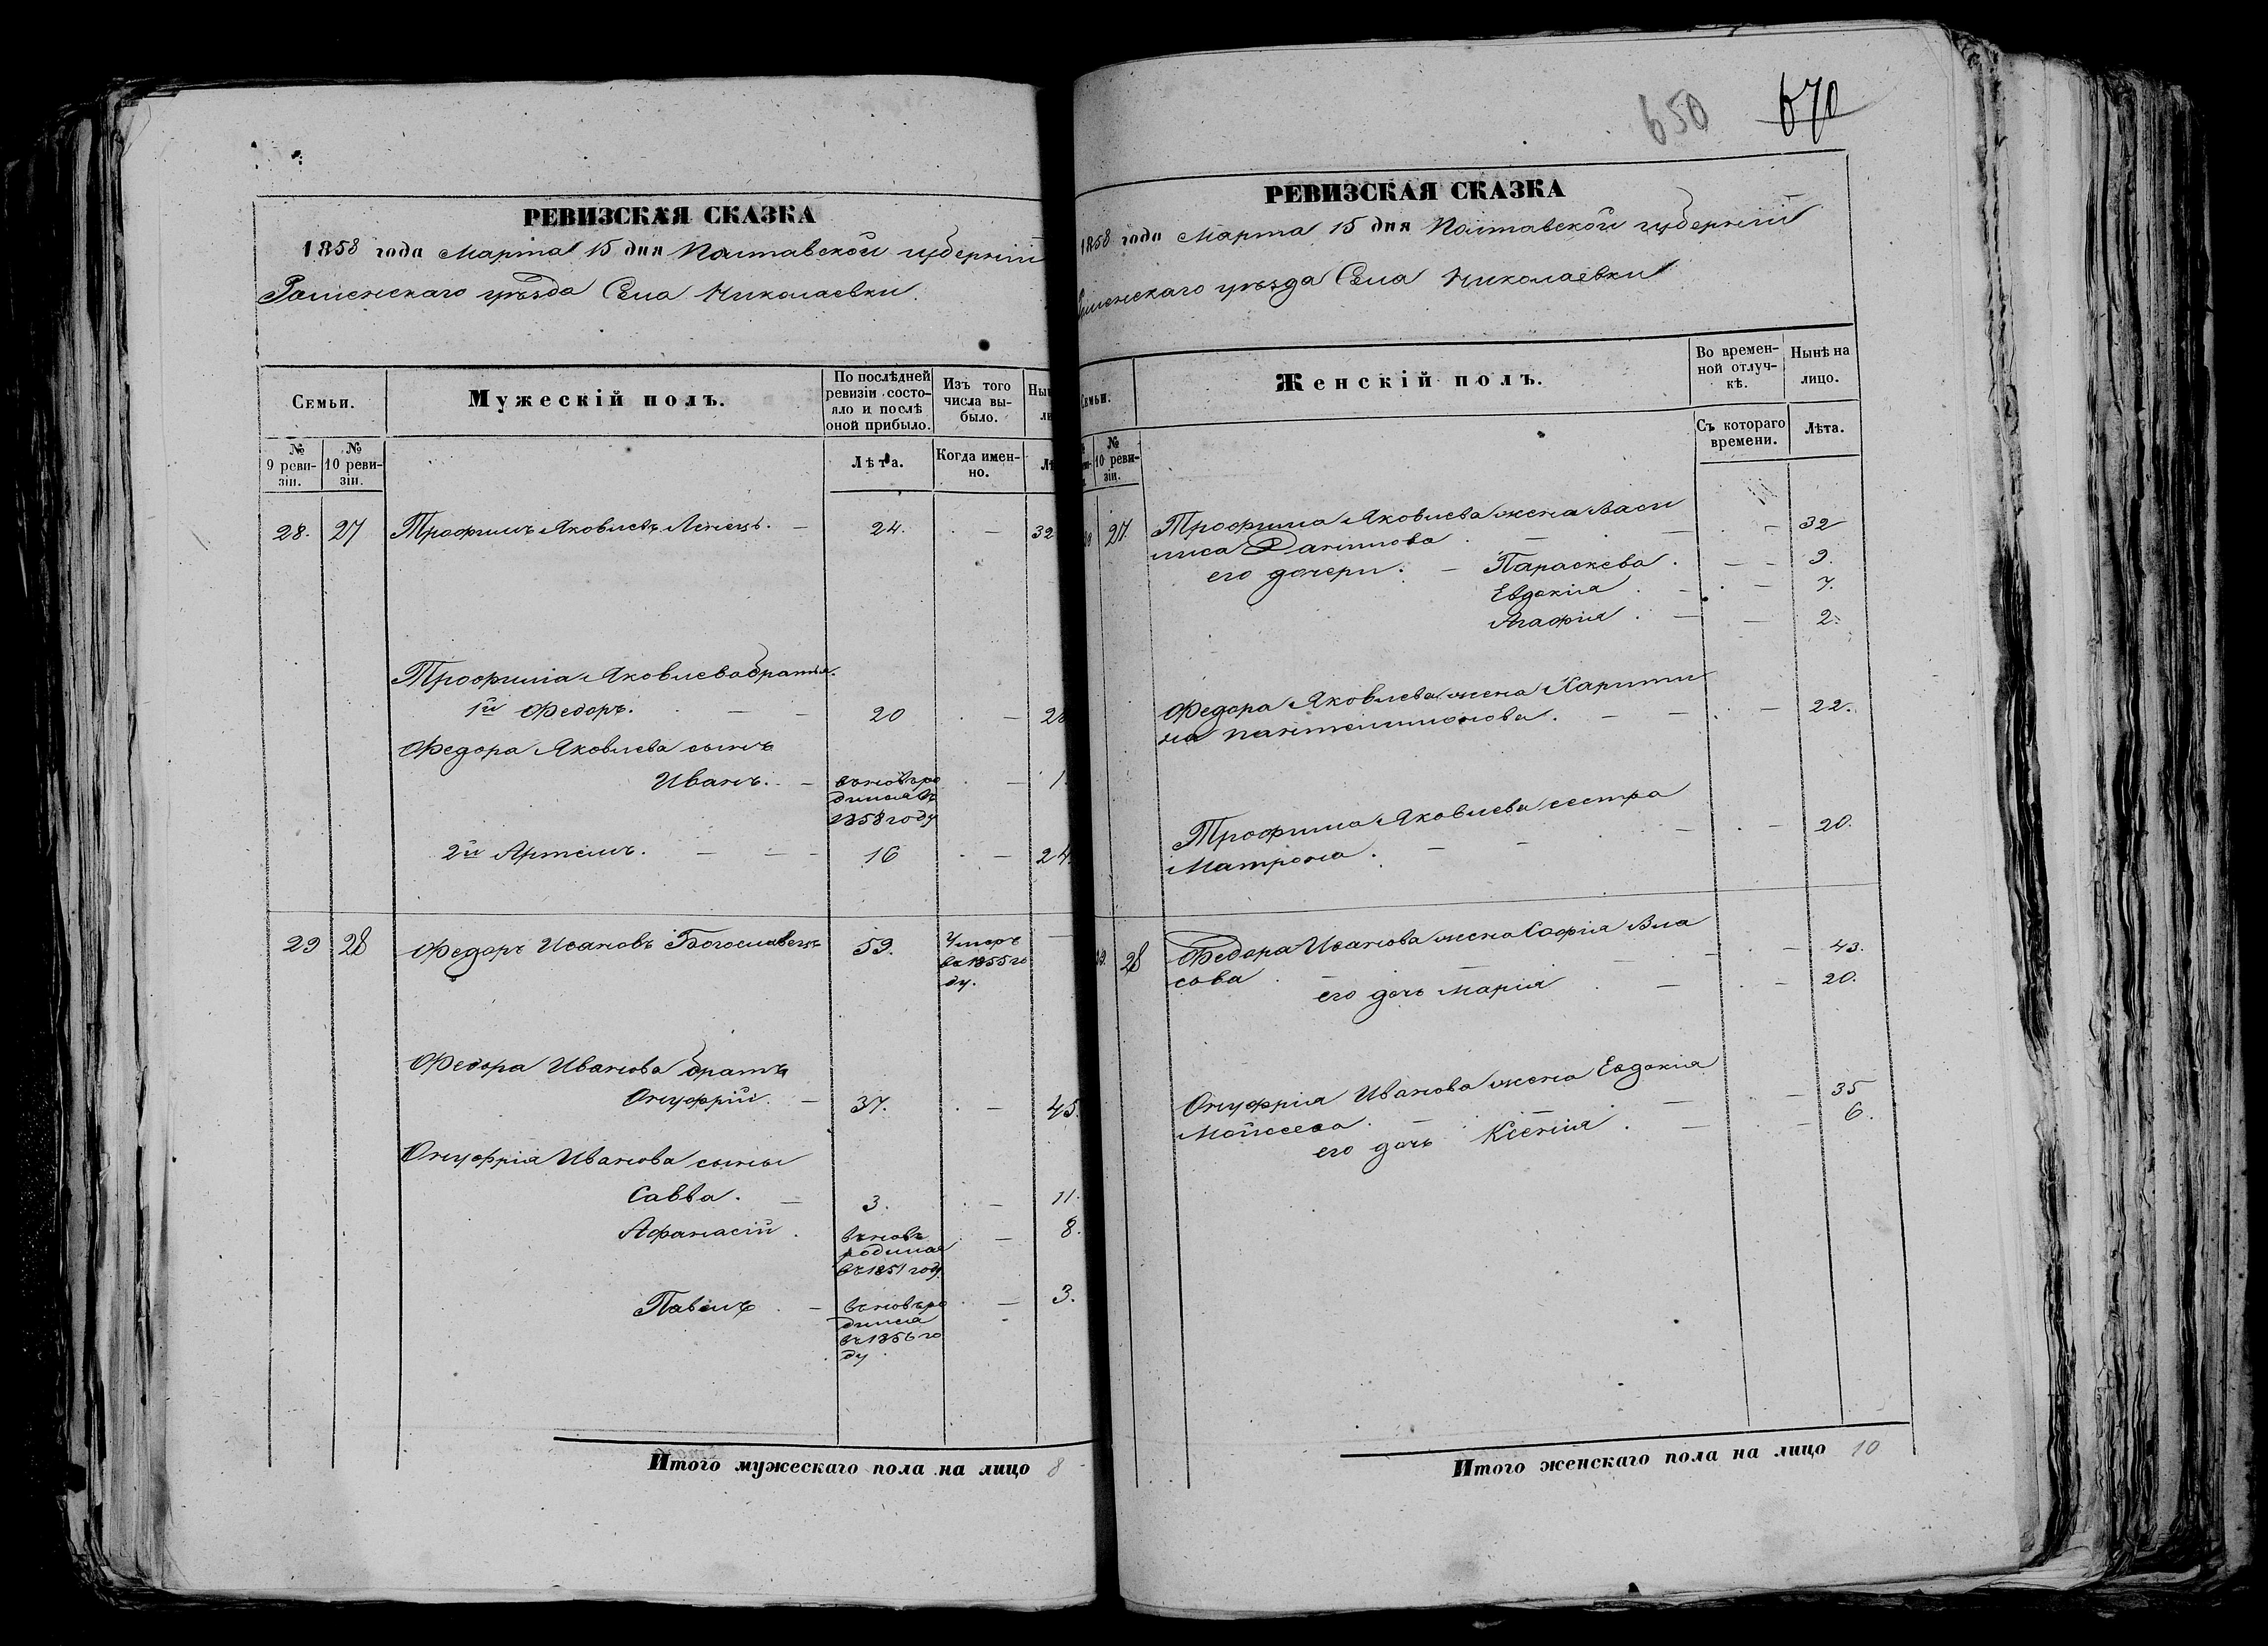 РЕВИЗСКАЯ СКАЗКА
1858 года Марта 15 дня Полтавской губерніи
Роменскаго уѣзда Села Николаевки.
Семьи.
Мужескій полъ.
По послѣдней ревизіи состояло и послѣ оной прибыло.
Изъ того числа выбыло.
№ 9 ревизіи.
№ 10 ревизіи.
Лѣта.
Когда именно.
28. 27 Трофимъ Яковлевъ Ленецъ. — 24. — 32
Трофима Яковлева братья.
1й Федоръ. — — 20 — 28
Федора Яковлева сынъ
Иванъ. — вновь ро — 1
дился въ
1858 году
2й Артемъ. — — — 16 — 24.
29 28 Федоръ Ивановъ Богославецъ 59. Умеръ —
въ 1855 го
ду.
Федора Иванова братъ
Онуфрій. — 37. — 45.
Онуфрія Иванова сыны
Савва. — 3. — 11.
Афанасій. вновь — 8.
родился
въ 1851 году
Павелъ — вновь ро — 3.
дился
въ 1856 го
ду.
Итого мужескаго пола на лицо 8
650 670
РЕВИЗСКАЯ СКАЗКА
1858 года Марта 15 дня Полтавской губерніи
Роменскаго уѣзда Села Николаевки
Семьи.
Женскій полъ.
Во временной отлучкѣ.
Нынѣ на лицо.
№ 10 ревизіи.
Съ котораго времени.
Лѣта.
27. Трофима Яковлева жена Васи
лиса Данилова — — — 32
его дочери. — Параскева. — — 9.
Евдокія. — — 7.
Агафія. — — 2.
Федора Яковлева жена Харити
на Пантелимонова. — — — 22.
Трофима Яковлева сестра
Матрона. — — — — 20.
28 Федора Иванова жена Софія Вла
сова — — — 43.
его дочь Марія — — 20.
Онуфрія Иванова жена Евдокія
Мойсеева. — — — 35
его дочь Ксенія. — — 6.
Итого женскаго пола на лицо 10